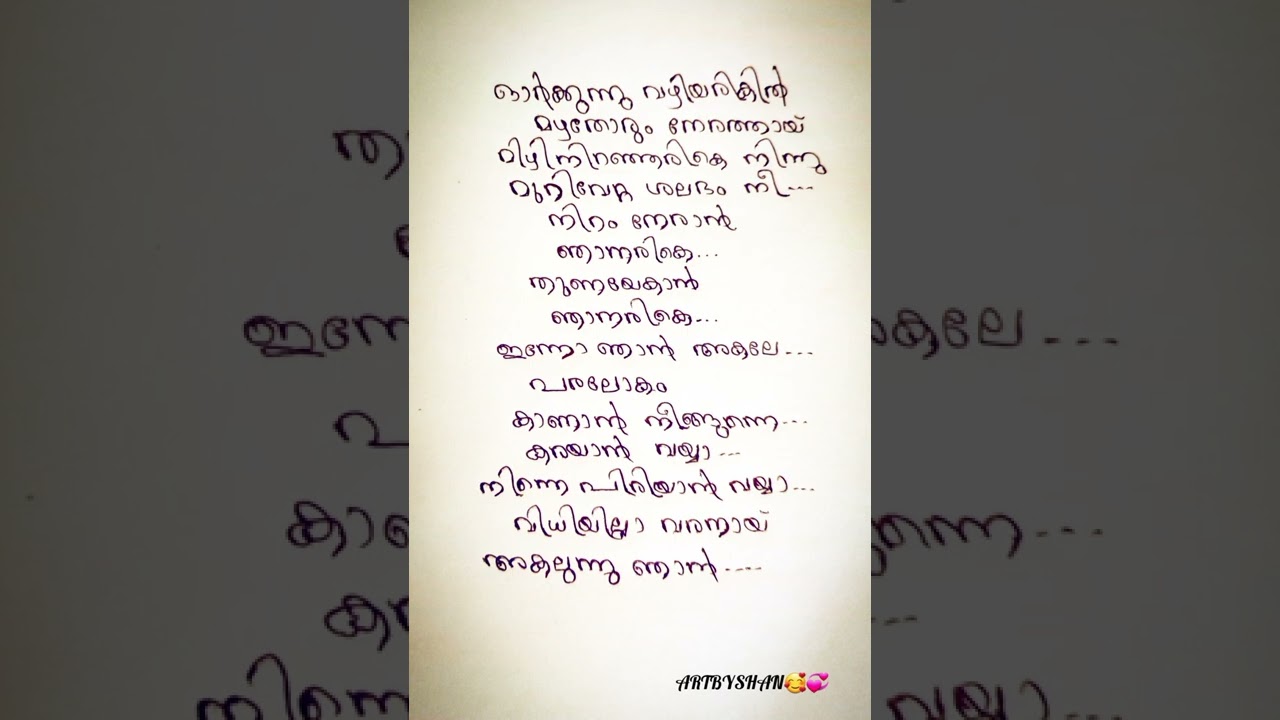 ഓർക്കുന്നു വഴിയരികിൽ
മഴതോരും നേരത്തായ്
മിഴിനിറഞ്ഞരികെ നിന്നു
മുറിവേറ്റ ശലഭം നീ---
നിറം നേരാൻ
ഞാനരികെ...
തുണയേകാൻ
ഞാനരികെ...
ഇന്നോ ഞാൻ അകലേ...
പരലോകം
കാണാൻ നീങ്ങുന്നെ---
കരയാൻ വയ്യാ---
നിന്നെ പിരിയാൻ വയ്യാ...
വിധിയില്ലാ വരനായ്
അകലുന്നു ഞാൻ----
ARTBYSHAN🥰💞